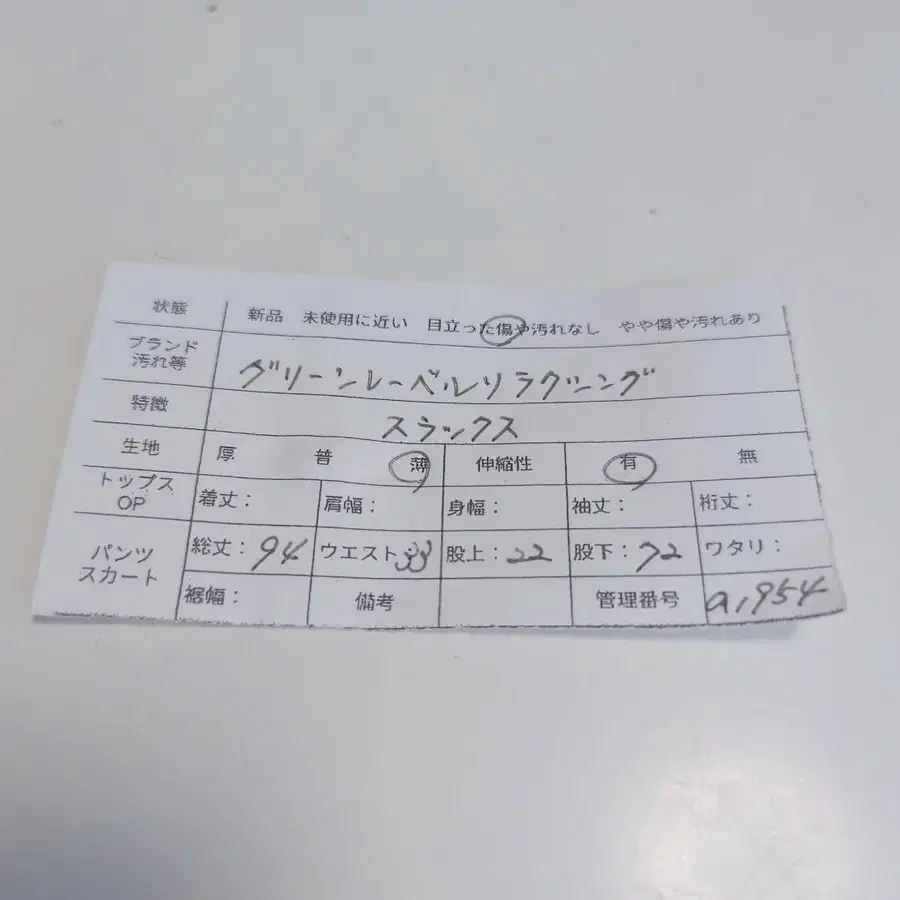 状態 新品 未使用に近い 目立った傷や汚れなし やや傷や汚れあり
ブランド
汚れ等 グリーンレーベルリラクシング
特徴 スラックス
生地 厚 普 薄 伸縮性 有 無
トップス
OP 着丈: 肩幅: 身幅: 袖丈: 裄丈:
パンツ
スカート 総丈:94 ウエスト33 股上:22 股下:72 ワタリ:
裾幅: 備考 管理番号 a,954